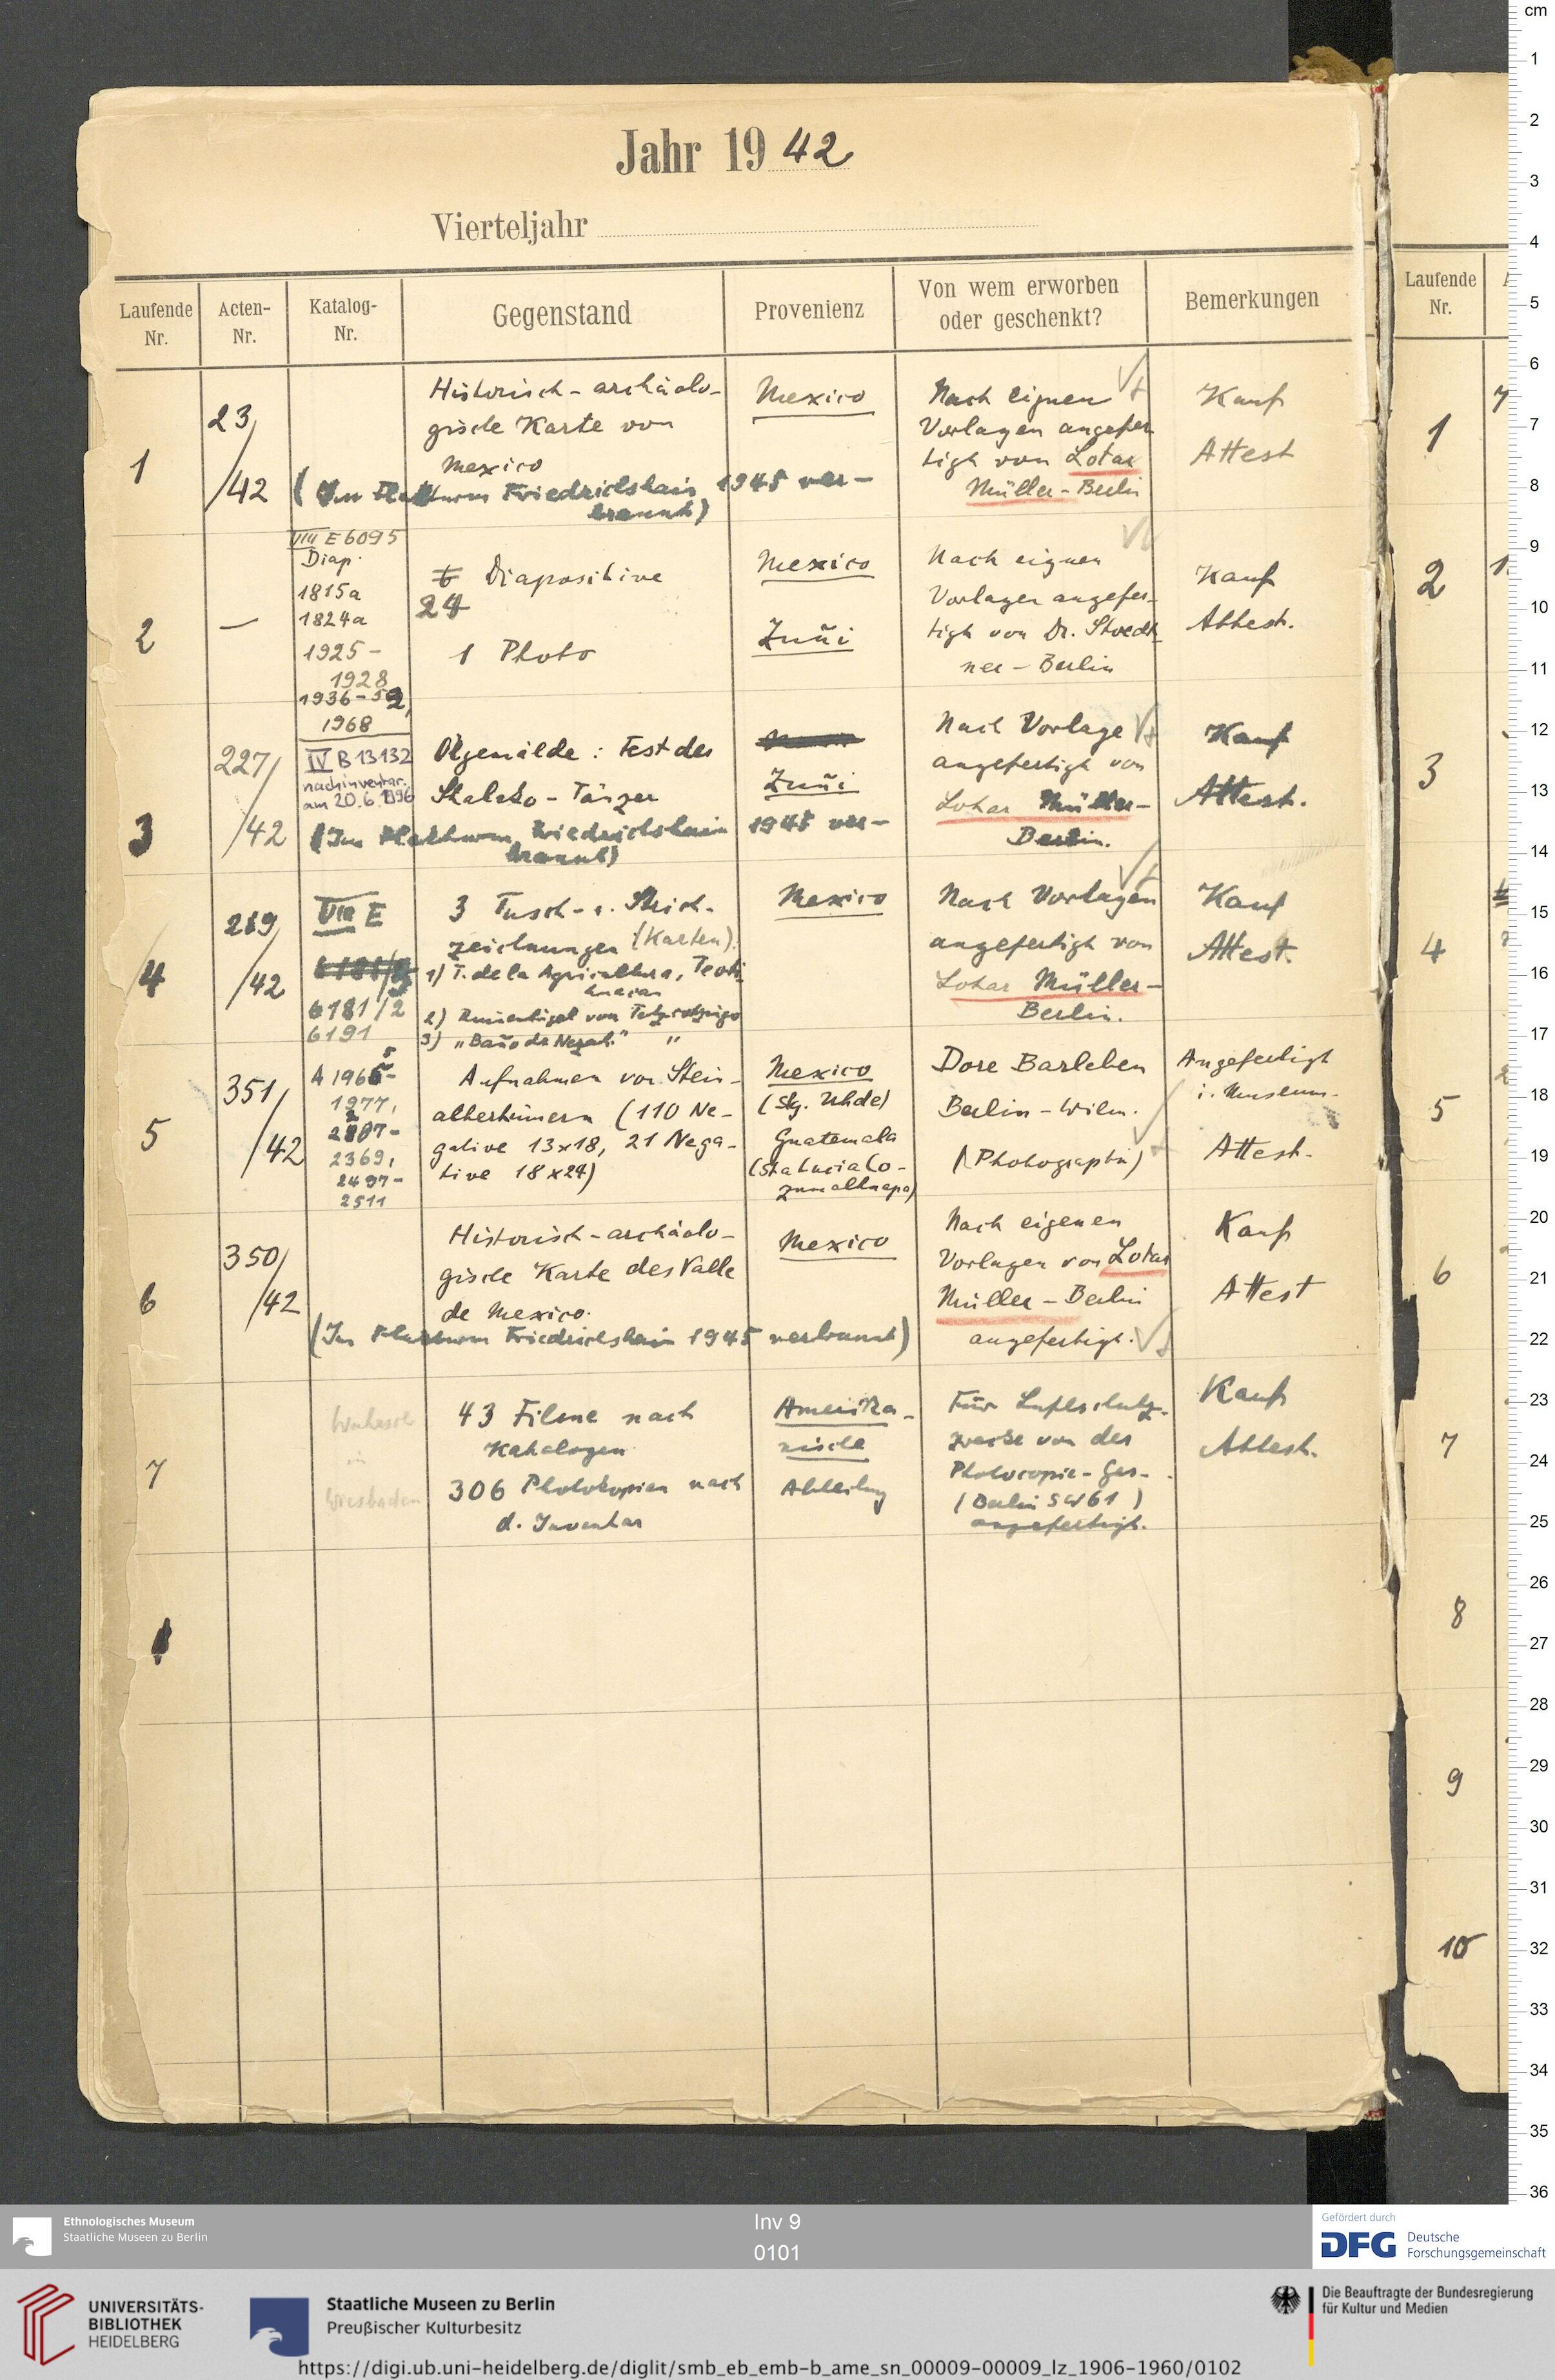 Jahr 19 42
Vierteljahr
Laufende Nr.
Acten-Nr.
Katalog-Nr.
Gegenstand
Provenienz
Von wem erworben oder geschenkt?
Bemerkungen
1
23/
/42
Historisch-archäolo-
gische Karte von
Mexico
(Im Flakturm Friedrichshain 1945 ver-
brannt)
Mexico
Nach eignen
Vorlagen angefer
tigt von Lotar
Müller-Berlin
Kauf
Attest
2
—
VIII E 6095
Diap.
1815a
1824a
1925-
1928
1936-52,
1968
24
Diapositive
1 Photo
Mexico
Zuñi
Nach eignen
Vorlagen angefer-
tigt von Dr. Stoedt
ner - Berlin
Kauf
Attest.
3
227/
/42
IV B 13132
nachinventar.
am 20.6.1996
Ölgemälde: Fest des
Shalako-Tänzer
(Im Flakturm Friedrichshain 1945 ver-
brannt)
Zuñi
Nach Vorlage
angefertigt von
Lotar Müller-
Berlin.
Kauf
Attest.
4
289/
/42
VIII E
6181/2
6191
3 Tusch- u. Strich-
zeichnungen (Karten).
1) T. de la Agricultura, Teoti
huacan
2) Ruinenhügel von
3) „Baño de Nezah." "
Mexico
Nach Vorlagen
angefertigt von
Lotar Müller-
Berlin.
Kauf
Attest.
5
351/
/42
A 1965-
1977,
2369,
2497-
2511
Aufnahmen von Stein-
altertümern (110 Ne-
gative 13x18, 21 Nega-
tive 18x24)
Mexico
(Slg. Uhde)
Guatemala
(Sta Lucia Co-
zumalhuapa)
Dore Barleben
Berlin-Wilm.
(Photographin)
Angefertigt
i. Museum.
Attest.
6
350/
/42
Historisch-archäolo-
gische Karte des Valle
de Mexico.
(Im Flakturm Friedrichshain 1945 verbrannt)
Mexico
Nach eigenen
Vorlagen von Lotar
Müller-Berlin
angefertigt.
Kauf
Attest
7
in
Wiesbaden
43 Filme nach
Katalogen
306 Photokopien nach
d. Inventar
Amerika-
nische
Abteilung
Für Luftschutz-
zwecke von der
Photocopie-Ges.
(Berlin SW 61)
angefertigt.
Kauf
Attest.
Laufende Nr.
1
2
3
4
5
6
7
8
9
10
cm
1
2
3
4
5
6
7
8
9
10
11
12
13
14
15
16
17
18
19
20
21
22
23
24
25
26
27
28
29
30
31
32
33
34
35
36
Ethnologisches Museum
Staatliche Museen zu Berlin
Inv 9
0101
Gefördert durch
DFG Deutsche Forschungsgemeinschaft
UNIVERSITÄTS-
BIBLIOTHEK
HEIDELBERG
Staatliche Museen zu Berlin
Preußischer Kulturbesitz
Die Beauftragte der Bundesregierung
für Kultur und Medien
https://digi.ub.uni-heidelberg.de/diglit/smb_eb_emb-b_ame_sn_00009-00009_lz_1906-1960/0102